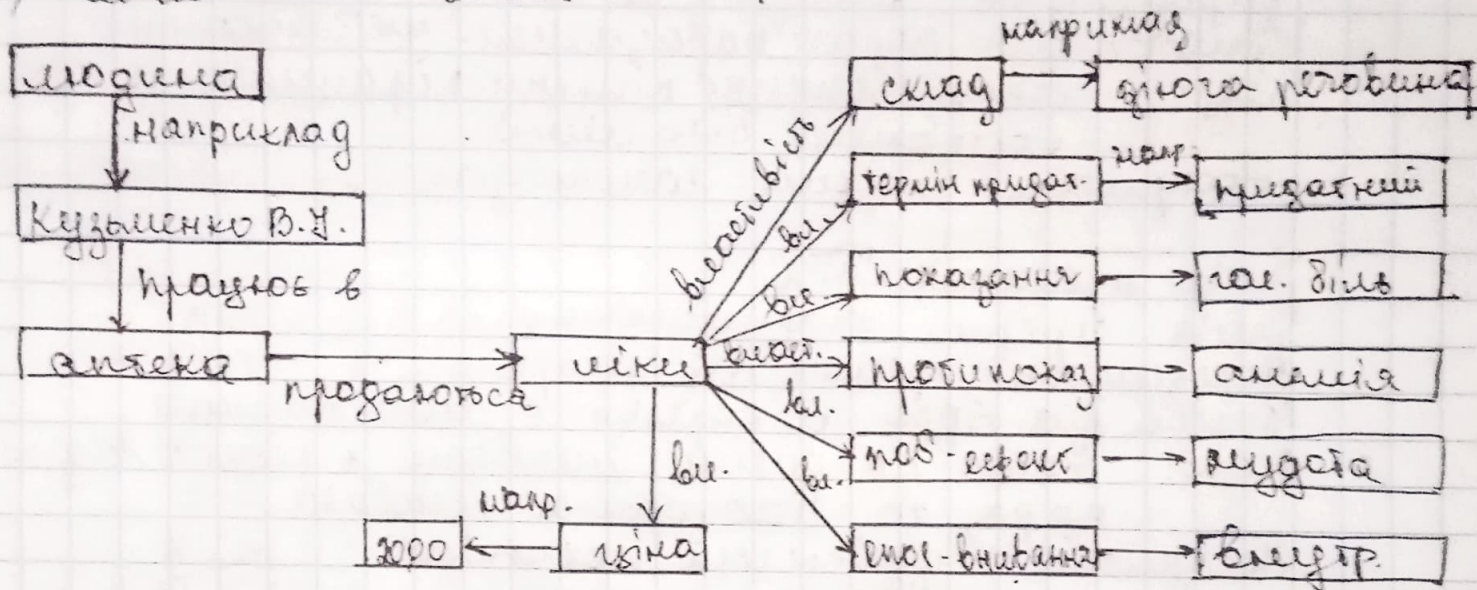 людина
наприклад
Кузьменко В.І.
працює в
аптека
продаються
ліки
властивість
склад
наприклад
діюча речовина
вл.
термін придат.
напр.
придатний
вл.
показання
гол. біль
власт.
протипоказ
анемія
вл.
поб-ефект
нудота
вл.
спос-вживання
внутр.
вл.
ціна
напр.
2000